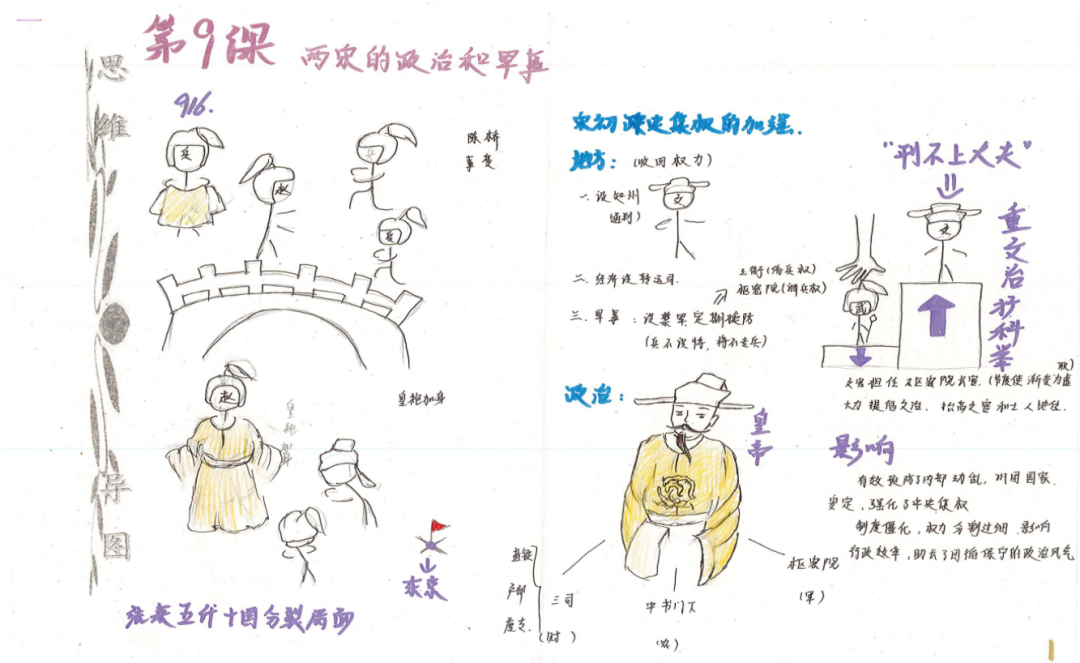 第9课 两宋的政治和军事
思维导图
916.
兵
赵
兵
兵
陈桥
事变
赵
皇袍加身
皇袍加身
东京
结束五代十国分裂局面
宋初 集权的加强.
地方: (收回权力)
一. 设知州
通判)
文
二. 经济设转运司.
三衙(练兵权)
枢密院(调兵权)
三. 军事: 设禁军定期换防
(兵不识将, 将不专兵)
政治:
皇帝
盐铁
户部
度支.
三司
(财)
中书门下
枢密院
(军)
"刑不上大夫"
文
武
重文治扩科举
文官担任枢密院长官. (节度使渐变为虚
大力提倡文治. 抬高文官和士人地位.
影响
有效预防了内部动乱, 巩固国家
安定, 强化了中央集权
制度僵化, 权力分割过细 影响
行政效率, 助长了因循保守的政治风气
1